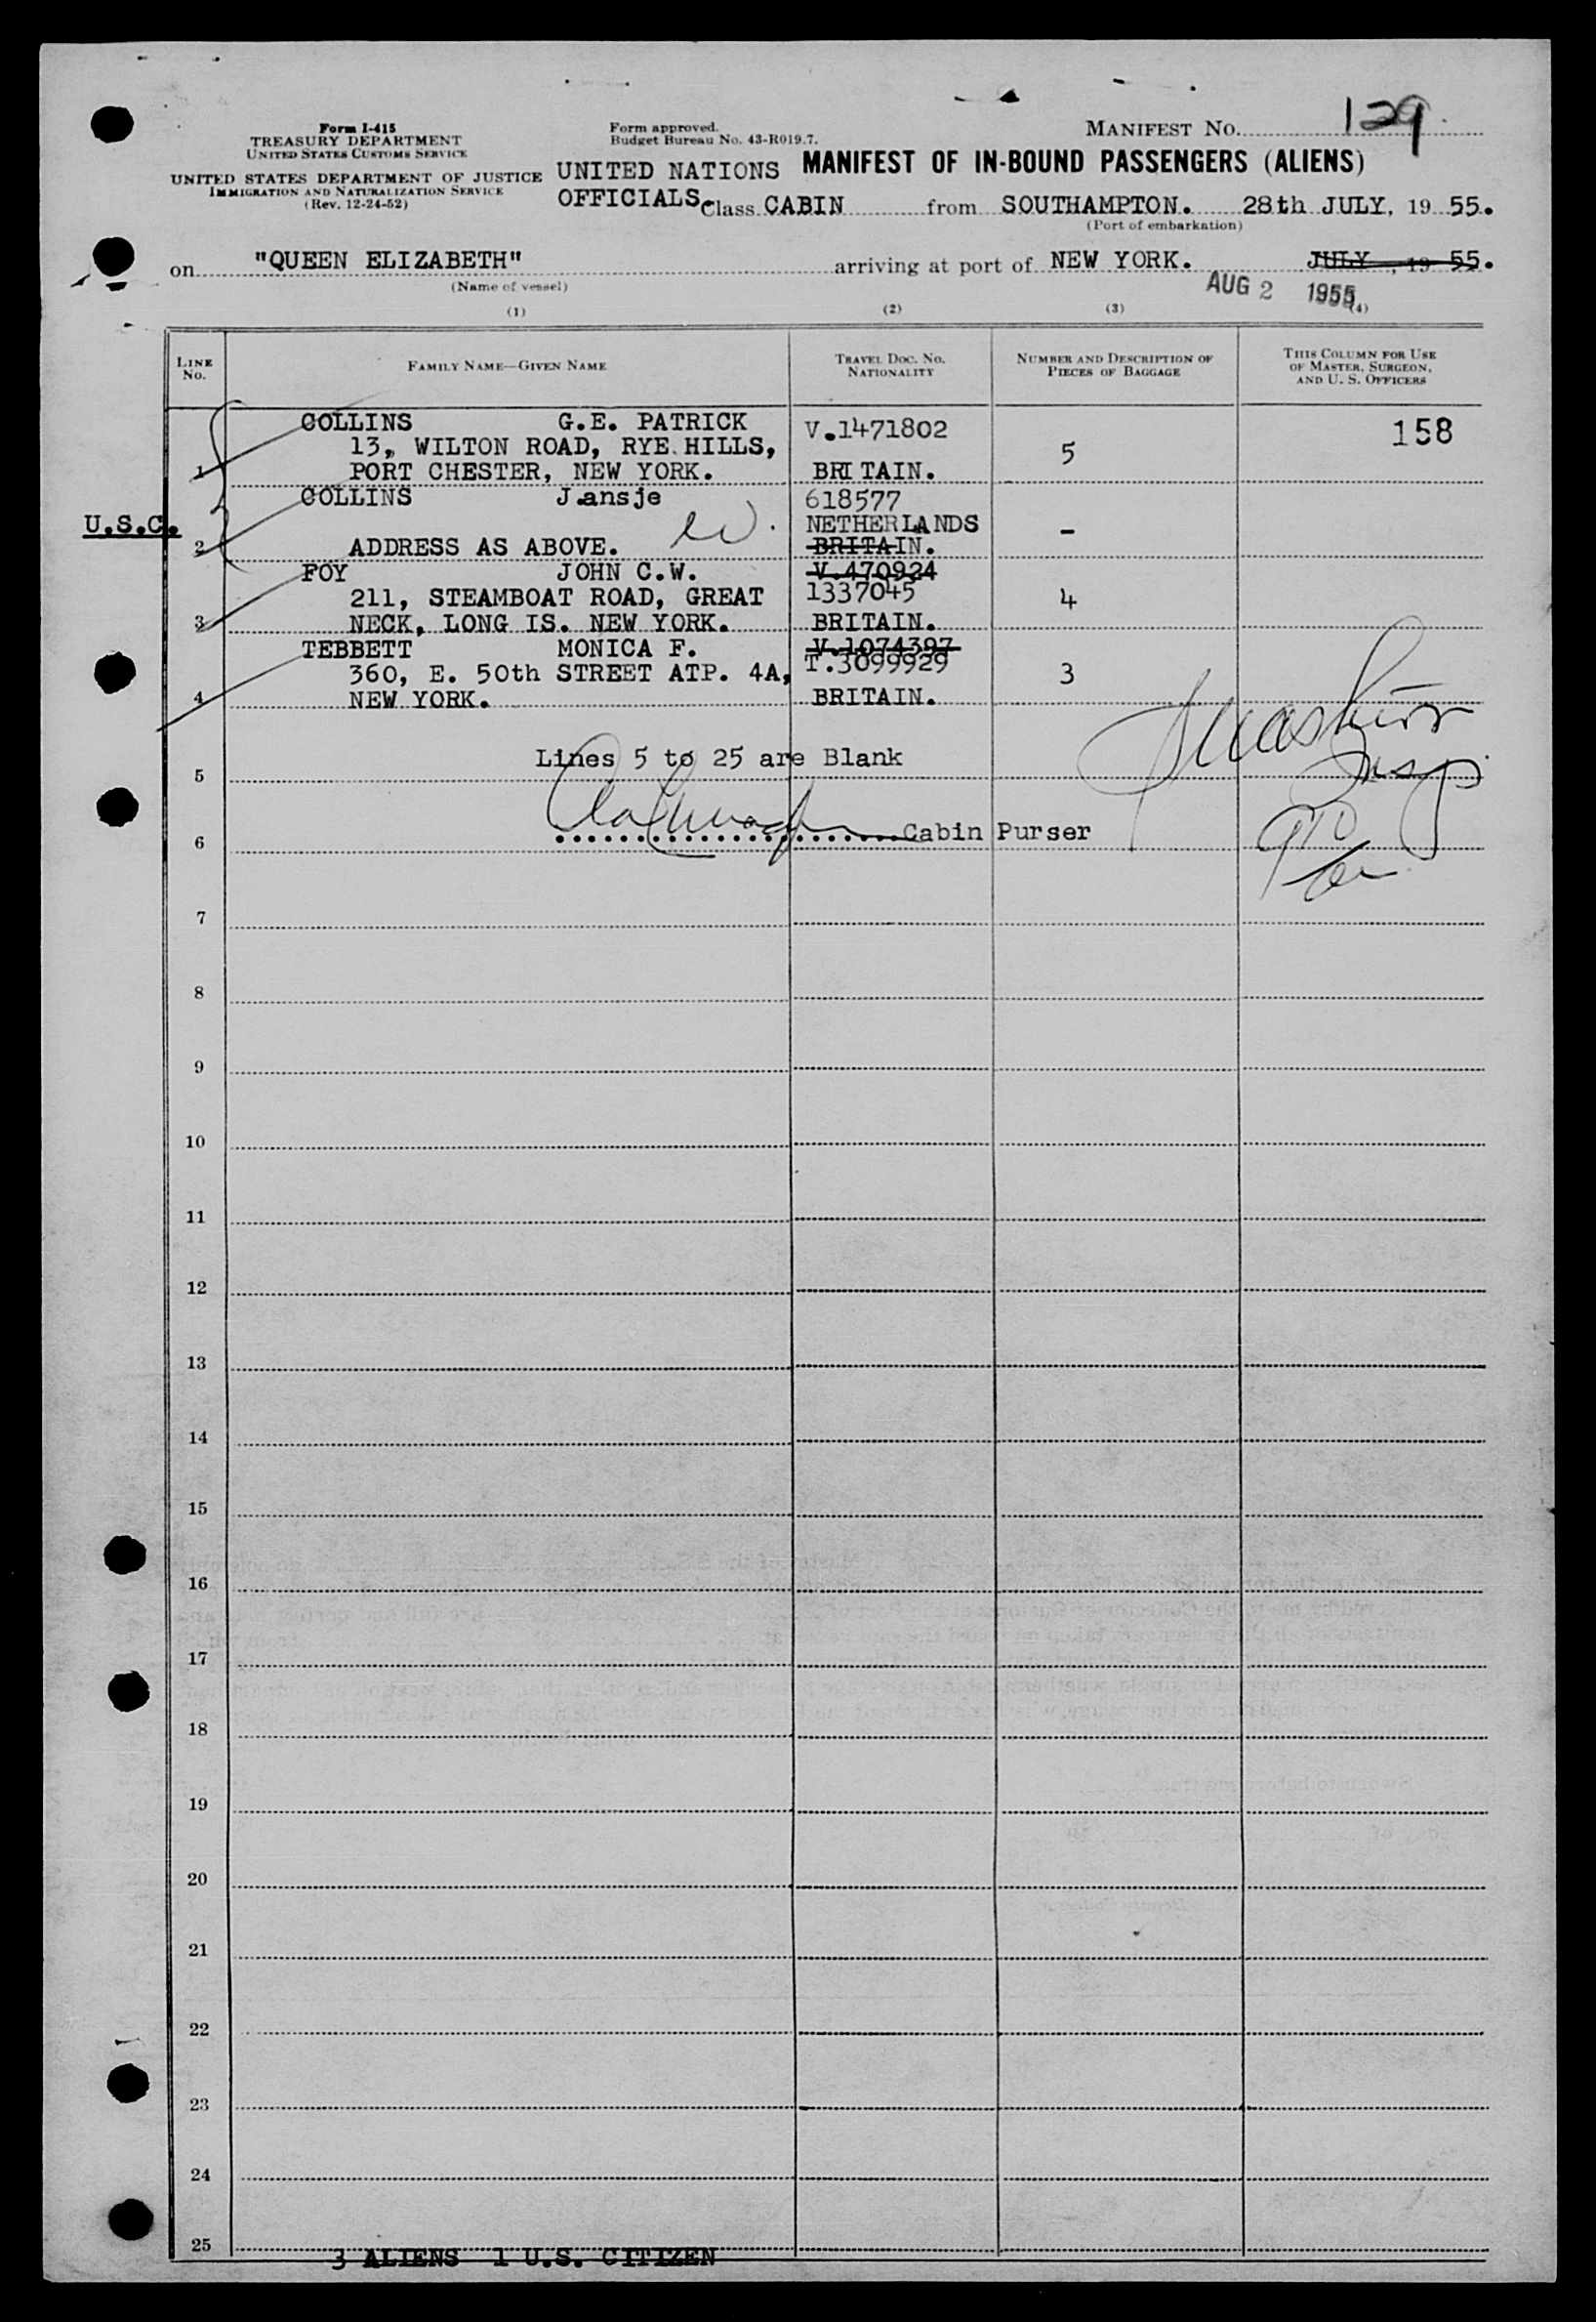 Form I-415
TREASURY DEPARTMENT
UNITED STATES CUSTOMS SERVICE
UNITED STATES DEPARTMENT OF JUSTICE
IMMIGRATION AND NATURALIZATION SERVICE
(Rev. 12-24-52)
Form approved.
Budget Bureau No. 43-R019.7.
MANIFEST NO. 129
UNITED NATIONS MANIFEST OF IN-BOUND PASSENGERS (ALIENS)
OFFICIALS. Class CABIN from SOUTHAMPTON. 28th JULY, 19 55.
(Port of embarkation)
on "QUEEN ELIZABETH" arriving at port of NEW YORK. JULY, 19 55.
(Name of vessel)
AUG 2 1955
(1) (2) (3) (4)
LINE NO.
FAMILY NAME—GIVEN NAME
TRAVEL DOC. NO. NATIONALITY
NUMBER AND DESCRIPTION OF PIECES OF BAGGAGE
THIS COLUMN FOR USE OF MASTER, SURGEON, AND U. S. OFFICERS
COLLINS G.E. PATRICK V.1471802 158
13, WILTON ROAD, RYE HILLS, 5
1 PORT CHESTER, NEW YORK. BRITAIN.
COLLINS Jansje 618577
U.S.C. NETHERLANDS -
2 ADDRESS AS ABOVE. BRITAIN.
FOY JOHN C.W. V.470924
211, STEAMBOAT ROAD, GREAT 1337045 4
3 NECK, LONG IS. NEW YORK. BRITAIN.
TEBBETT MONICA F. V.1074397
360, E. 50th STREET ATP. 4A, T.3099929 3
4 NEW YORK. BRITAIN.
Lines 5 to 25 are Blank
5
Insp
Cabin Purser
6
7
8
9
10
11
12
13
14
15
16
17
18
19
20
21
22
23
24
25
3 ALIENS 1 U.S. CITIZEN